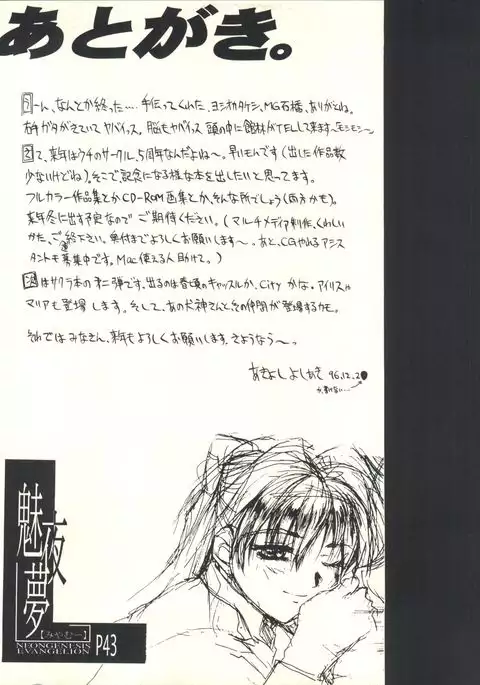 あとがき。
うーん、なんとか終った‥‥手伝ってくれた、ヨシオカタケシ、MG石橋、ありがとね。
右手がタがきていてヤバイッス。脳もヤバイッス。頭の中に館林がTELして来ます〜モシモシ〜
さて、来年はウチのサークル、5周年なんだよね〜。早いもんです(出した作品数
少ないけどね)。そこで記念になる様な本を出したいと思ってます。
フルカラー作品集とかCD-ROM画集とか、そんな所でしょう(両方かも)。
来年冬に出す予定なので ご期待ください。(マルチメディア制作、くわしい
かた、ご連絡下さい。奥付までよろしくお願いします〜。あと、CGやれるアシス
タントも募集中です。Mac使える人助けて。)
次はサクラ本の第二弾です。出るのは春頃のキャッスルか、Cityかな。アイリスや
マリアも登場します。そして、あの犬神さんとその仲間が登場するカモ。
それではみなさん、来年もよろしくお願いします。さようなら〜。
あきよし よしあき 96.12.2
魅夜夢
【みやむー】
NEONGENESIS
EVANGELION
P43